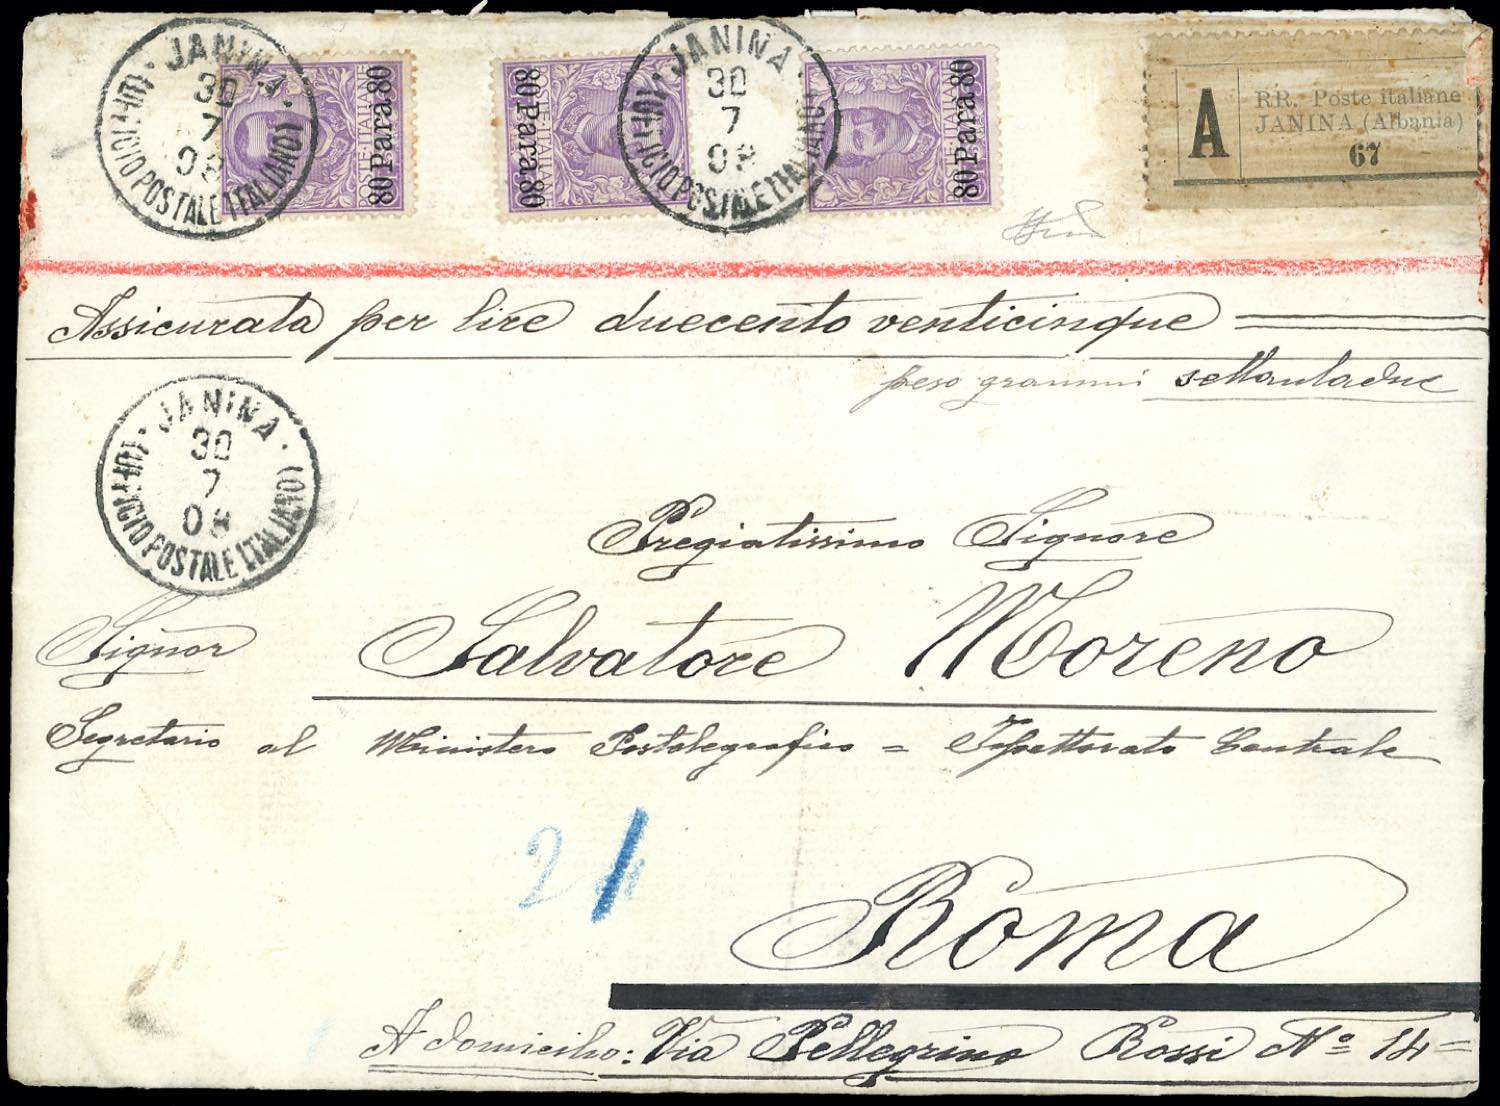 JANINA
30
7
08
(UFFICIO POSTALE ITALIANO)
POSTE ITALIANE
80 Para 80
80 Para 80
JANINA
30
7
08
(UFFICIO POSTALE ITALIANO)
POSTE ITALIANE
80 Para 80
A
RR. Poste italiane
JANINA (Albania)
67
Assicurata per lire duecento venticinque
peso grammi settantadue
JANINA
30
7
08
(UFFICIO POSTALE ITALIANO)
Pregiatissimo Signore
Signor Salvatore Moreno
Segretario al Ministero Postelegrafico = Ispettorato Centrale
Roma
A domicilio: Via Pellegrino Rossi Nº 14=